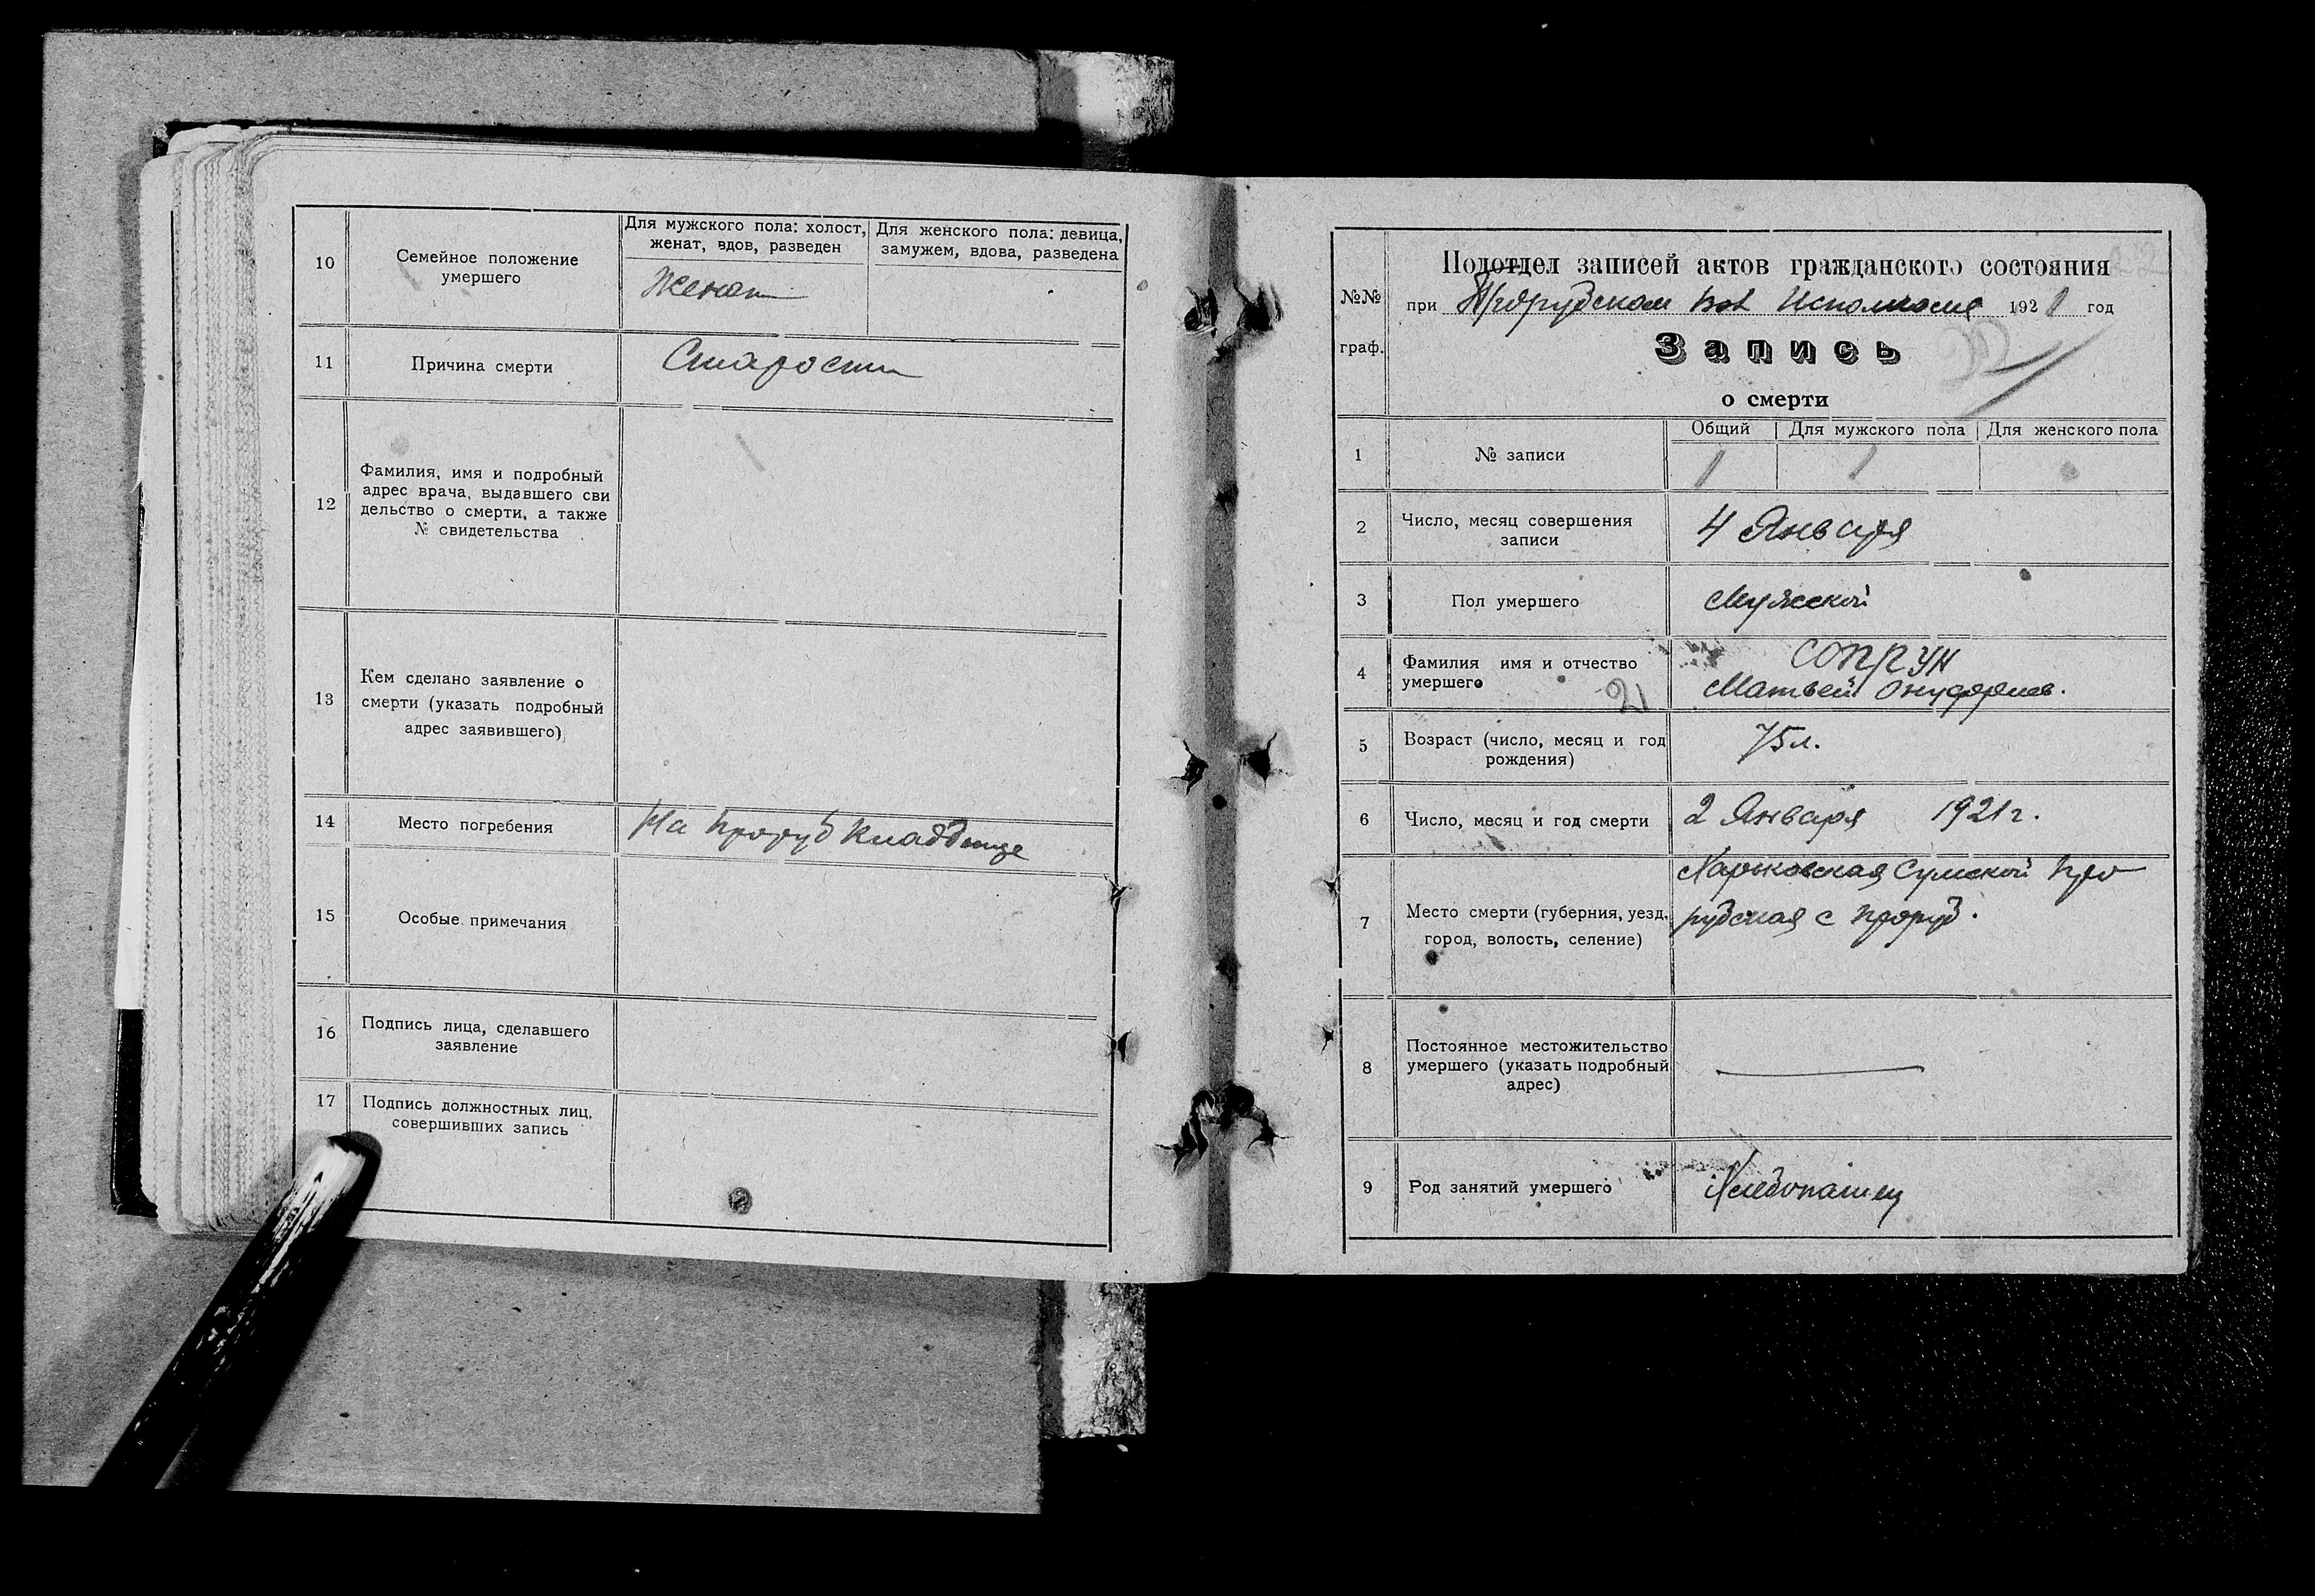 10
Семейное положение
умершего
Для мужского пола: холост,
женат, вдов, разведен
Для женского пола: девица,
замужем, вдова, разведена
Женат
11
Причина смерти
Старости
12
Фамилия, имя и подробный
адрес врача, выдавшего сви
дельство о смерти, а также
№ свидетельства
13
Кем сделано заявление о
смерти (указать подробный
адрес заявившего)
14
Место погребения
На Проруб кладбище
15
Особые примечания
16
Подпись лица, сделавшего
заявление
17
Подпись должностных лиц,
совершивших запись
№№
граф.
Подотдел записей актов гражданского состояния
при Прорубском Вол Исполкоме 1921 год
Запись
о смерти
1
№ записи
Общий
Для мужского пола
Для женского пола
1
1
2
Число, месяц совершения
записи
4 Января
3
Пол умершего
Мужской
4
Фамилия имя и отчество
умершего
21
СОПРУН
Матвей Онуфриев.
5
Возраст (число, месяц и год
рождения)
75 л.
6
Число, месяц и год смерти
2 Января 1921 г.
7
Место смерти (губерния, уезд,
город, волость, селение)
Харьковская Сумской Про
рубская с Проруб.
8
Постоянное местожительство
умершего (указать подробный
адрес)
9
Род занятий умершего
Хлебопашец